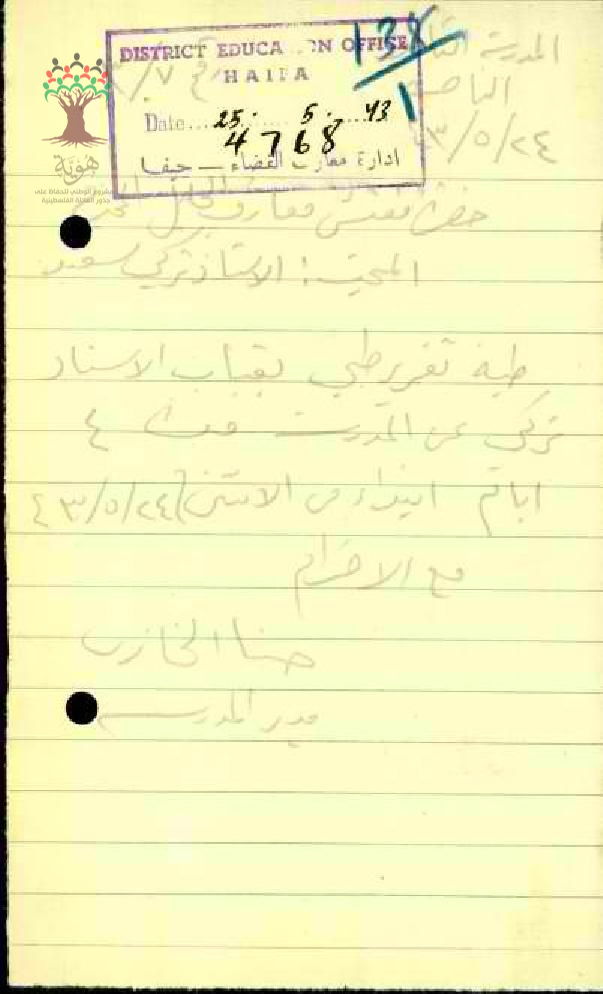 DISTRICT EDUCA ON OFFICE
HAIFA
Date... 25. 5. 43
4768
ادارة معارف القضاء — حيفا
138
1
هوية
المشروع الوطني للحفاظ على
جذور العائلة الفلسطينية
المدرسة
الناصرة
٤٣/٥/٢٤
حضرة مفتش معارف الجليل
المبحث: الاستاذ تركي سعيد
طيه تقرير طبي بغياب الاستاذ
تركي عن المدرسة مدة ٤
ايام ابتداء من الاثنين ٤٣/٥/٢٤
مع الاحترام
حنا الخازن
مدير المدرسة